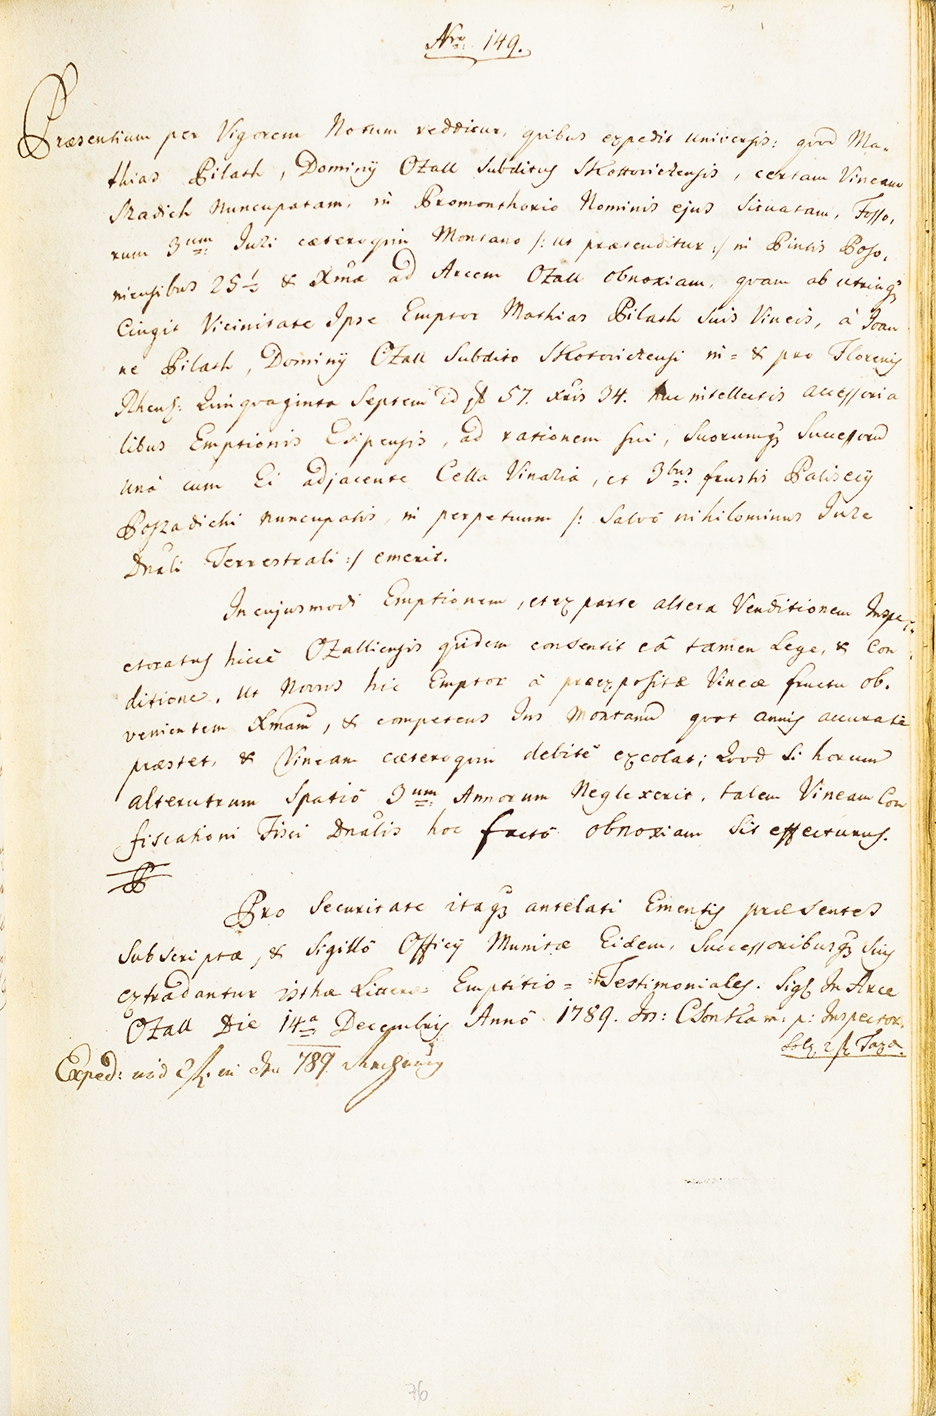 Nro 149.
Præsentium per Vigorem Notum redditur, quibus expedit universis: quod Ma-
thias Pilath, Dominij Ozall Subditus Skottoviczensis, certam Vineam
Mladich Nuncupatam, in Promonthorio Nominis ejus Situatam, Fosso-
rum 3um Juri cæteroquin Montano /: ut prætenditur :/ in Pintis Poso-
niensibus 25½ & Xmæ ad Arcem Ozall obnoxiam, quam ab utrinqȝ
Cingit Vicinitate Ipse Emptor Mathias Pilath Suis Vineis, à Joan
ne Pilath, Dominij Ozall Subdito Skotoviczensi in= & pro Florenis
Rhens: Quinquaginta Septem id est 57. Xris 34. huc intellectis accessoria
libus Emptionis Expensis, ad rationem sui, Suorumqȝ Successorum
Unà cum Ei adjacente Cella Vinaria, et 3bus frustis Paliscij
Poszadichi nuncupatis, in perpetuum /: Salvô nihilominus Jure
Dnali Terrestrali :/ emerit.
In cujusmodi Emptionem, et ex parte altera Venditionem Inspe-
ctoratus hicce Ozalliensis quidem consentit eâ tamen Lege, & Con
ditione, ut Novus hic Emptor à præexpositæ Vineæ fructu ob-
venientem Xmam, & competens Jus Montanum quot annis accurate
præstet, & Vineam cæteroquin debitè excolat; Quod Si horum
alterutrum Spatiô 3um Annorum Neglexerit, talem Vineam Con
fiscationi Fisci Dnalis hoc factô obnoxiam Sit effecturus.
Pro Securitate itaqȝ antelati Ementis præsentes
Subscriptæ, & Sigillô Officij Munitæ Eidem, Successoribusqȝ Suis
extradantur isthæ Literæ Emptitio = Testimoniales. Sigl. In Arce
Ozall Die 14a Decembris Annô 1789. Jos: Csontka m: p: Inspector.
Sol. 2 f. Taxa.
Exped: 789.
76